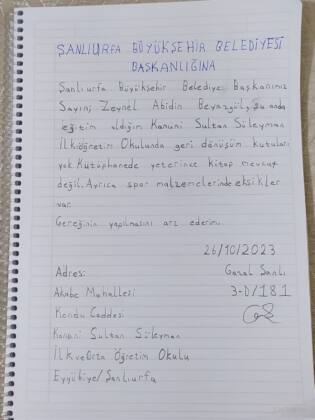 ŞANLIURFA BÜYÜKŞEHİR BELEDİYESİ
BAŞKANLIĞINA
Şanlıurfa Büyükşehir Belediye Başkanımız
Sayın; Zeynel Abidin Beyazgül, Şu anda
eğitim aldığım Kanuni Sultan Süleyman
İlköğretim Okulunda geri dönüşüm kutuları
yok. Kütüphanede yeterince kitap mevcut
değil. Ayrıca spor malzemelerinde eksikler
var.
Gereğinin yapılmasını arz ederim.
26/10/2023
Adres: Gazal Şanlı
Akabe Mahallesi 3-D/181
Kendu Caddesi
Kanuni Sultan Süleyman
İlk ve Orta Öğretim Okulu
Eyyübiye/Şanlıurfa